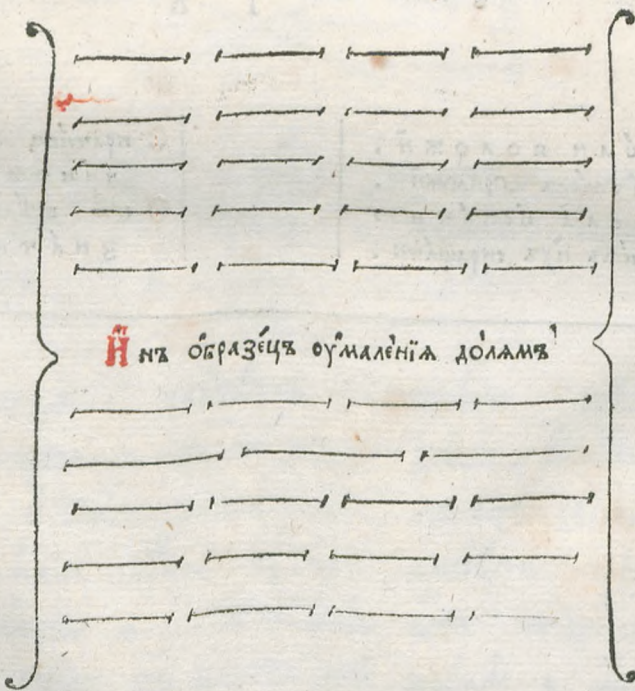 И҆́нъ ѻ҆бразе́цъ ᲂу҆мале́нїѧ до́лѧмъ